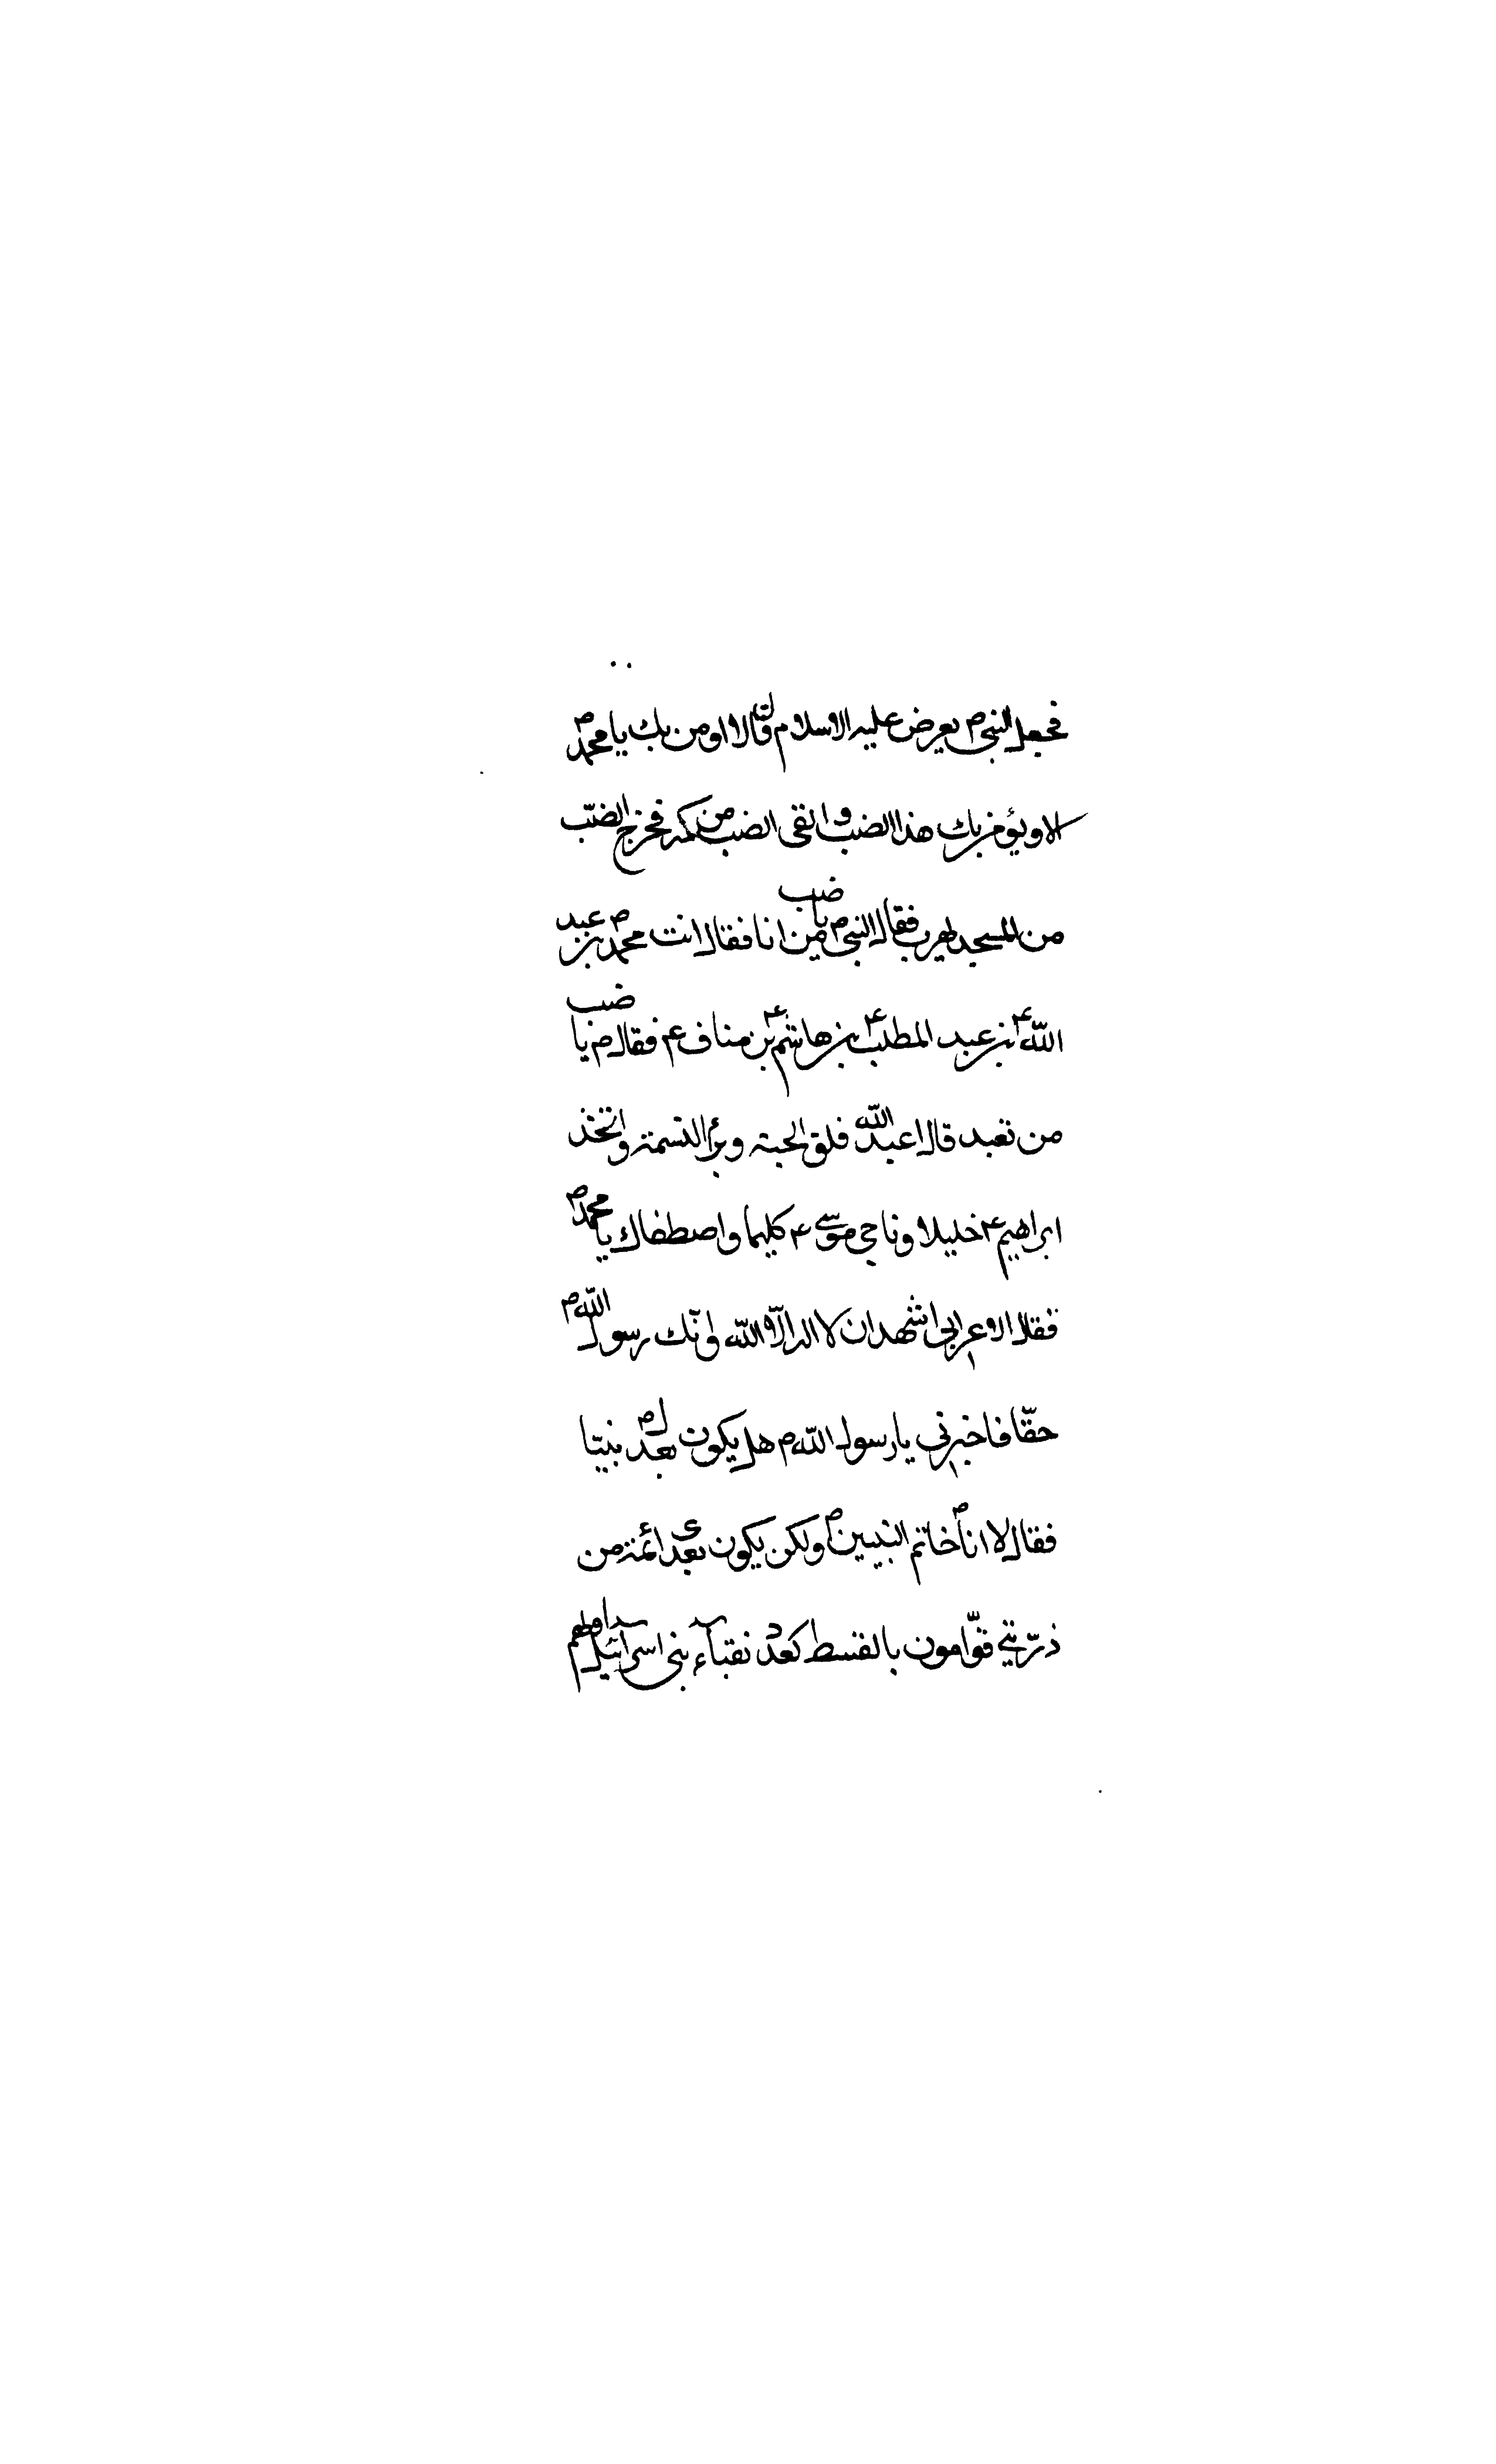 فجعل النبي ص يعرض عليه الاسلام فقال لا اومن بك يا محمد ص
لا ويؤمن بك هذا الضب والقى الضب من كمه فخرج الضبّ
من المسجد ليهرب فقال النبي ص يا ضب من انا فقال انت محمد ص بن عبد
اللّه ع بن عبد المطلب ع بن هاشم ع بن مناف ع فقال ص يا ضب
من تعبد قال اعبد اللّه فلق الحبة وبرأ النسمة واتخذ
ابراهيم ع خليلا وناجى موسى ع كليما واصطفاك يا محمد ص
فقال الاعرابي اشهد ان لا اله الّا اللّه وانّك رسول اللّه ص
حقّا فاخبرني يا رسول اللّه ص هل يكون بعدك ص نبيّا
فقال لا انا ص خاتم النبيين ص ولكن يكون بعدي ائمة من
ذرّيتي قوّامون بالقسط كعدد نقبآء بني اسرآئيل اولهم